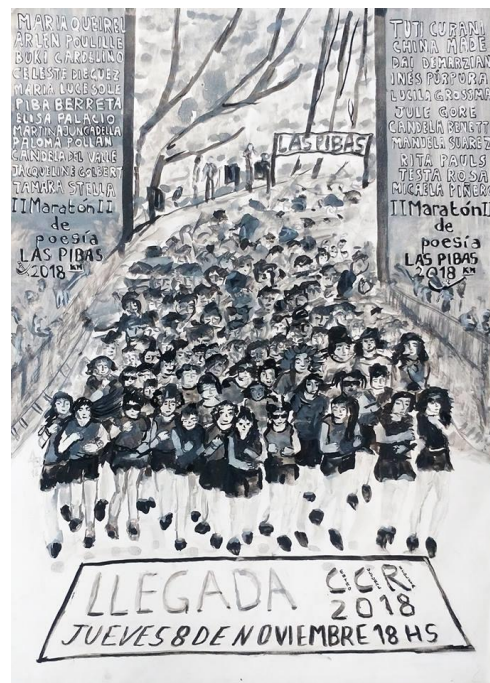 MARIA QUEIREL
ARLEN POULILLE
BUKI CARDELINO
CELESTE DIEGUEZ
MARIA LUCESOLE
PIBA BERRETA
ELISA PALACIO
MARTINA JUNGADELLA
PALOMA POLLAN
CANDELA DEL VALLE
JACQUELINE GOLBERT
TAMARA STELLA
II Maratón II
de
poesía
LAS PIBAS
2018 KM
LAS PIBAS
TUTI CURANI
CHINA MADE
DAI DEMARZIAN
INÉS PÚRPURA
LUCILA GROSSMA
JULE GORE
CANDELA BENETT
MANUELA SUAREZ
RITA PAULS
TESTA ROSA
MICAELA PIÑERO
II Maratón II
de
poesía
LAS PIBAS
2018 KM
LLEGADA C.C.R.
2018
JUEVES 8 DE NOVIEMBRE 18 HS